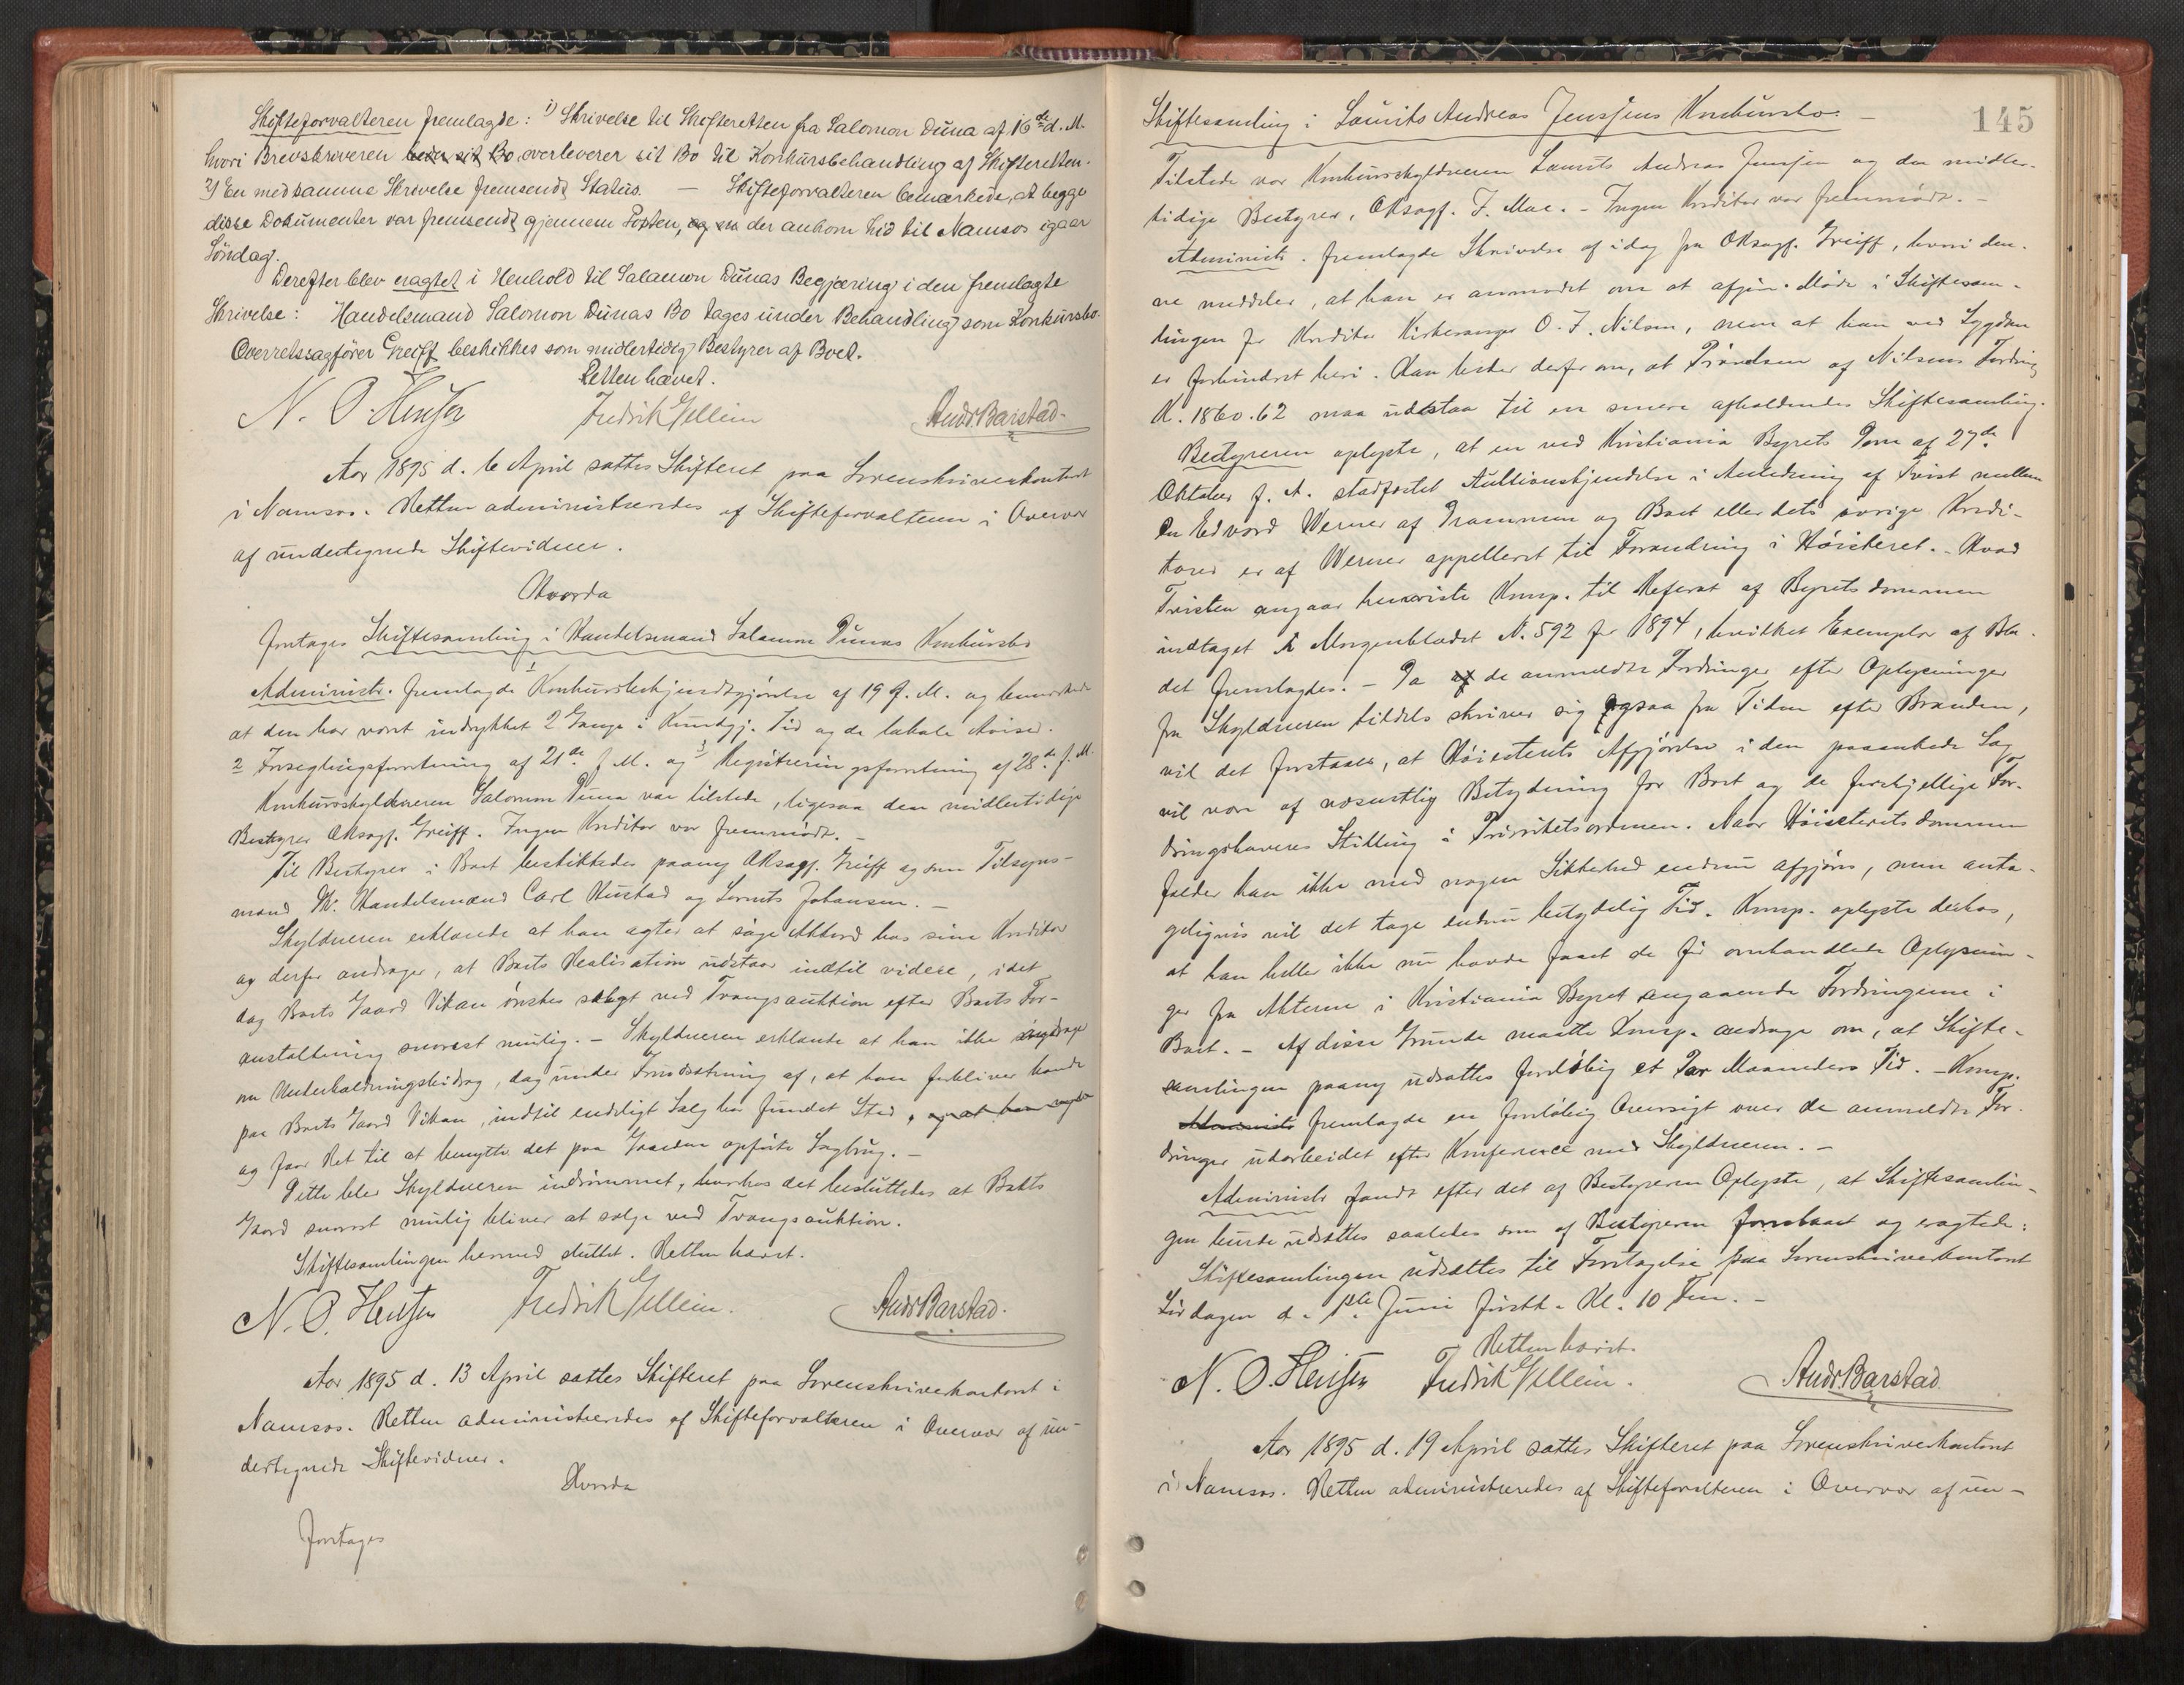 Skifteforvalteren fremlagde: 1) Skrivelse til Skifteretten fra Salomon Duna af 16de d. M.
hvori Brevskriveren beder sit Bo overleverer sit Bo til Konkursbehandling af Skifteretten.
2) En med samme Skrivelse fremsendt Status. — Skifteforvalteren bemærkede, at begge
disse Dokumenter var fremsendt gjennem Posten, og en der ankom hid til Namsos igaar
Søndag.
Derefter blev eragtet i Henhold til Salamon Dunas Begjæring i den fremlagte
Skrivelse: Handelsmand Salomon Dunas Bo tages under Behandling som Konkursbo.
Overretssagfører Greiff beskikkes som midlertidig Bestyrer af Boet.
Retten hævet.
N. O. Hensen Fredrik Gellein Andr Barstad
Aar 1895 d. 6 April sattes Skifteret paa Sorenskriverkontoret
i Namsos. Retten administreredes af Skifteforvalteren i Overvær
af undertegnede Skiftevidner.
Hvorda
foretages Skiftesamling i Handelsmand Salamon Dunas Konkursbo
Administr. fremlagde 1 Konkursbekjendtgjørelse af 19 f. M. og bemærkede
at den har været indrykket 2 Gange i Kundgj. Tid og de lokale Aviser.
2 Forseglingsforretning af 21de f. M. og 3 Registreringsforretning af 28de f. M.
Konkursskyldneren Salomon Duna var tilstede, ligesaa den midlertidige
Bestyrer ORsagf. Greiff. Ingen Kreditor var fremmødt. —
Til Bestyrer i Boet beskikkedes paany ORsagf. Greiff og som Tilsyns-
mænd Hr. Handelsmænd Carl Hustad og Lorents Johansen. —
Skyldneren erklærede at han agter at søge Akkord hos sine Kreditor
og derfor andrager, at Boets Realisation udstaar indtil videre, idet
dog Boets Gaard Vikan ønskes solgt ved Tvangsauktion efter Boets For-
anstaltning snarest mulig. — Skyldneren erklærte at han ikke
om Underholdningsbidrag, dog under Forudsætning af, at han forbliver boende
paa Boets Gaard Vikan, indtil endeligt Salg har fundet Sted, og at han
og faar Ret til at benytte det paa Gaarden opførte Sagbrug. —
Dette blev Skyldneren indrømmet, hvorhos det besluttedes at Boets
Gaard snarest mulig bliver at sælge ved Tvangsauktion.
Skiftesamlingen hermed sluttet. Retten hævet.
N. O. Hensen Fredrik Gellein. Andr Barstad.
Aar 1895 d. 13 April sattes Skifteret paa Sorenskriverkontoret i
Namsos. Retten administreredes af Skifteforvalteren i Overvær af un-
dertegnede Skiftevidner.
Hvorda
foretages
145
Skiftesamling i Laurits Andreas Jenssens Konkursbo. —
Tilstede var Konkursskyldneren Laurits Andreas Jenssen og den midler-
tidige Bestyrer, ORsagf. F. Moe. — Ingen Kreditor var fremmødt. —
Administr. fremlagde Skrivelse af idag fra ORsagf. Greiff, hvori den-
ne meddeler, at han er anmodet om at afgive Møde i Skiftesam-
lingen for Kreditor Kirkesanger O. J. Nilsen, men at han ved Sygdom
er forhindret heri. Han beder derfor om, at Prøvelsen af Nilsens Fordring
K. 1860.62 maa udstaa til en senere afholdendes Skiftesamling.
Bestyreren oplyste, at en ved Kristiania Byrets Dom af 27de
Oktober f. A. stadfæstet Auktionskjendelse i Anledning af Tvist mellem
En Edvard Werner af Drammen og Boet eller dets øvrige Kredi-
torer er af Werner appelleret til Forandring i Høiesteret. — Hvad
Tvisten angaar henviste Komp. til Referat af Byretsdommen
indtaget i Morgenbladet N. 592 for 1894, hvilket Exemplar af Bla-
det fremlagdes. — Da af de anmeldte Fordringer efter Oplysninger
fra Skyldneren tildels skriver sig ogsaa fra Tiden efter Branden,
vil det forstaaes, at Høiesterets Afgjørelse i den paaankede Sag
vil være af væsentlig Betydning for Boet og de forskjellige For-
dringshaveres Stilling i Prioritetsordenen. Naar Høiesteretsdommen
falder kan ikke med nogen Sikkerhed endnu afgjøres, men anta-
geligvis vil det tage endnu betydelig Tid. Komp. oplyste derhos,
at han heller ikke nu havde faaet de før omhandlede Oplysnin-
ger fra Akterne i Kristiania Byret angaaende Fordringerne i
Boet. — Af disse Grunde maatte Komp. andrage om, at Skifte-
samlingen paany udsattes foreløbig et Par Maaneders Tid. — Komp.
Administr. fremlagde en foreløbig Oversigt over de anmeldte For-
dringer udarbeidet efter Konference med Skyldneren. —
Administr fandt efter det af Bestyreren Oplyste, at Skiftesamlin-
gen burde udsættes saaledes som af Bestyreren foreslaaet og eragtede:
Skiftesamlingen udsættes til Foretagelse paa Sorenskriverkontoret
Lørdagen d. 1ste Juni førstk. Kl. 10 Fm. —
Retten hævet.
N. O. Hensen Fredrik Gellein. Andr Barstad
Aar 1895 d. 19 April sattes Skifteret paa Sorenskriverkontoret
i Namsos. Retten administreredes af Skifteforvalteren i Overvær af un-